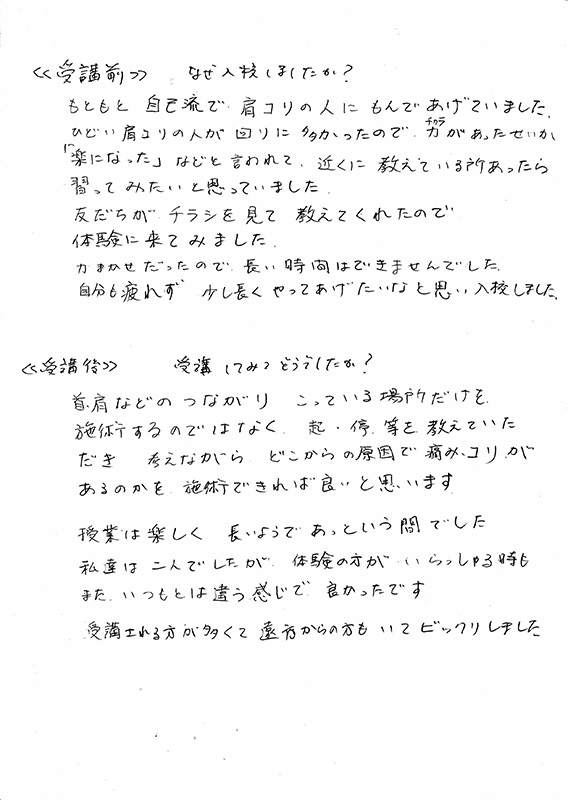 ≪受講前≫ なぜ入校しましたか?
もともと 自己流で 肩コリの人に もんであげていました。
ひどい肩コリの人が 回りに 多かったので、力があったせいか
チカラ
「楽になった」などと言われて、近くに 教えている所あったら
習って みたいと思っていました。
友だちが チラシを見て 教えてくれたので
体験に来てみました。
力まかせだったので、長い時間はできませんでした。
自分も疲れず 少し長く やってあげたいなと思い入校しました。
≪受講後≫ 受講してみてどうでしたか?
首、肩などの つながり こっている場所だけを
施術するのではなく、起・停、等を教えていた
だき 考えながら どこからの原因で痛み、コリが
あるのかを 施術できれば良いと思います
授業は楽しく 長いようで あっという間でした
私達は 二人でしたが、体験の方が いらっしゃる時も
また、いつもとは違う感じで 良かったです
受講される方が多くて 遠方からの方も いて ビックリしました